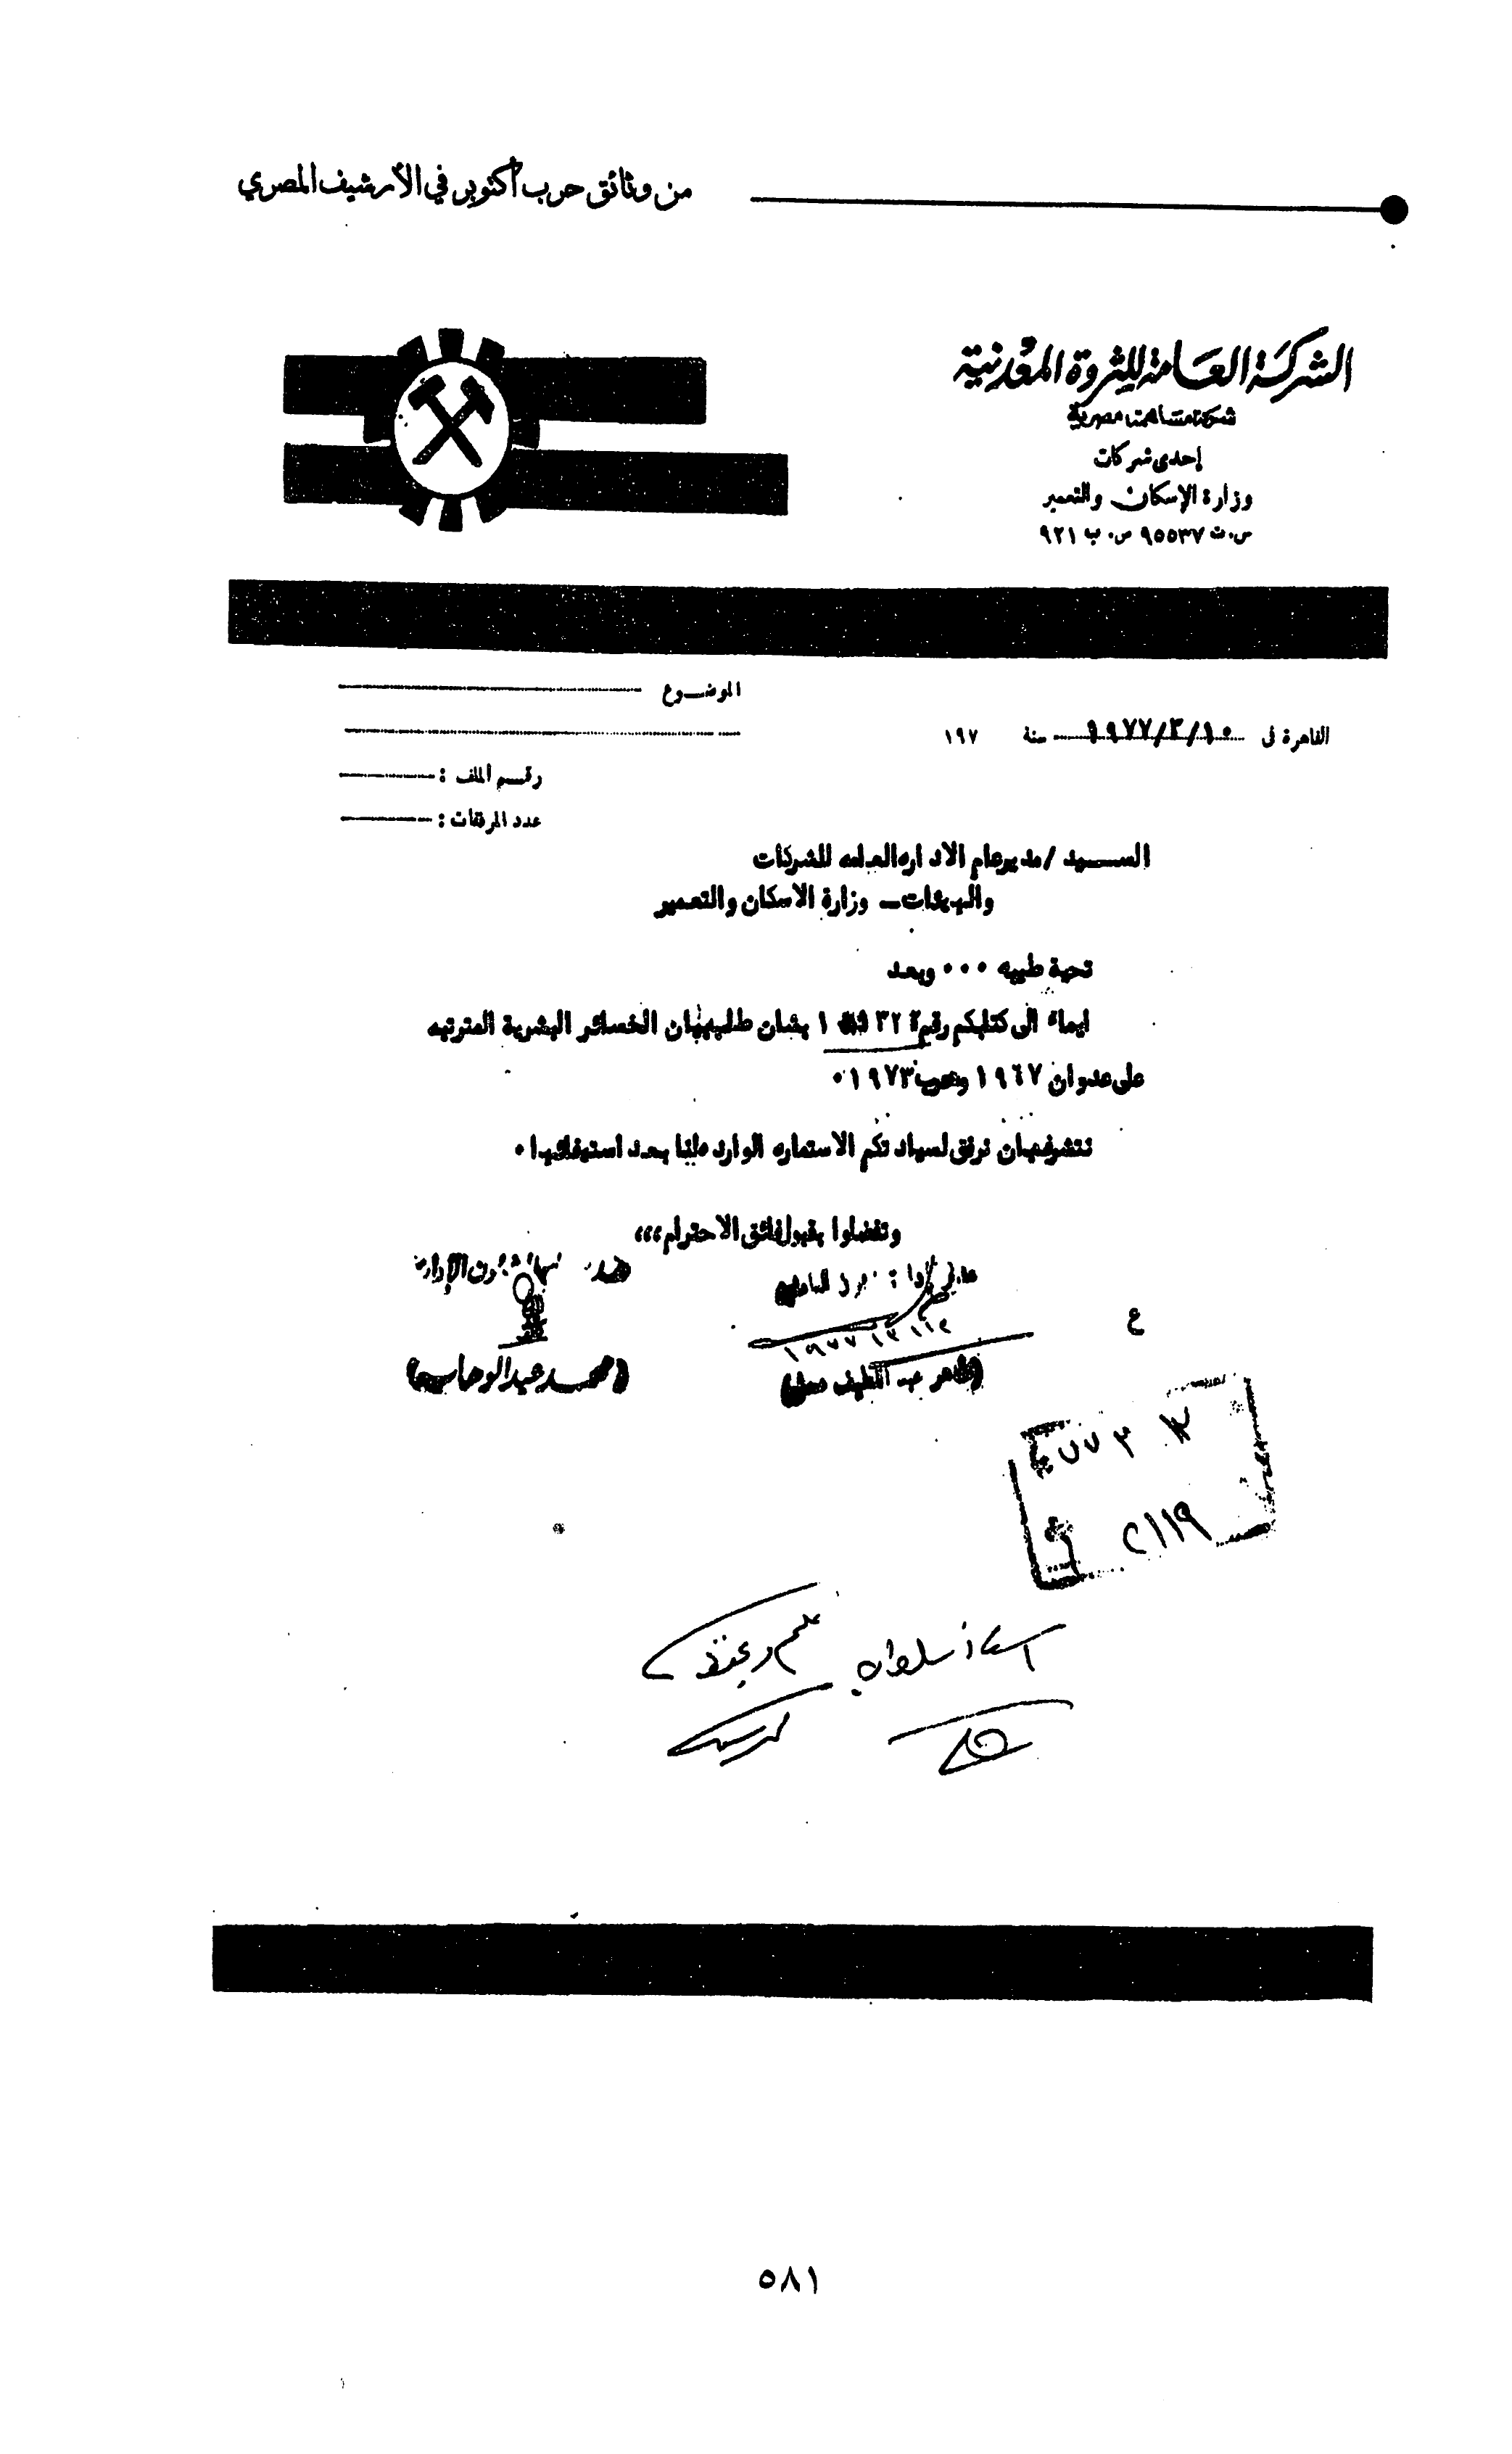 من وثائق حرب أكتوبر في الأرشيف المصري
الشركة العامة للثروة المعدنية
شركة مساهمة مصرية
إحدى شركات
وزارة الإسكان والتعمير
س.ت ٩٥٥٣٧ ص.ب ٩٢١
الموضوع
القاهرة فى ١٩٧٧/٣/١٠ سنة ١٩٧
رقم الملف :
عدد المرفقات :
السيد / مدير عام الاداره العامه للشركات
والهيئات ـ وزارة الاسكان والتعمير
تحية طيبه ٠٠٠ وبعد
ايماء الى كتابكم رقم بشان طلب بيان الخسائر البشرية المترتبه
على عدوان ١٩٦٧ وحرب ١٩٧٣ ٠
نتشرف بان نرفق لسيادتكم الاستماره الوارده الينا بعد استيفائها ٠
وتفضلوا بقبول فائق الاحترام ،،،
الإدارة
ع
(طاهر عبد اللطيف)
(محمد عبد الوهاب)
٢١١٩
٥٨١